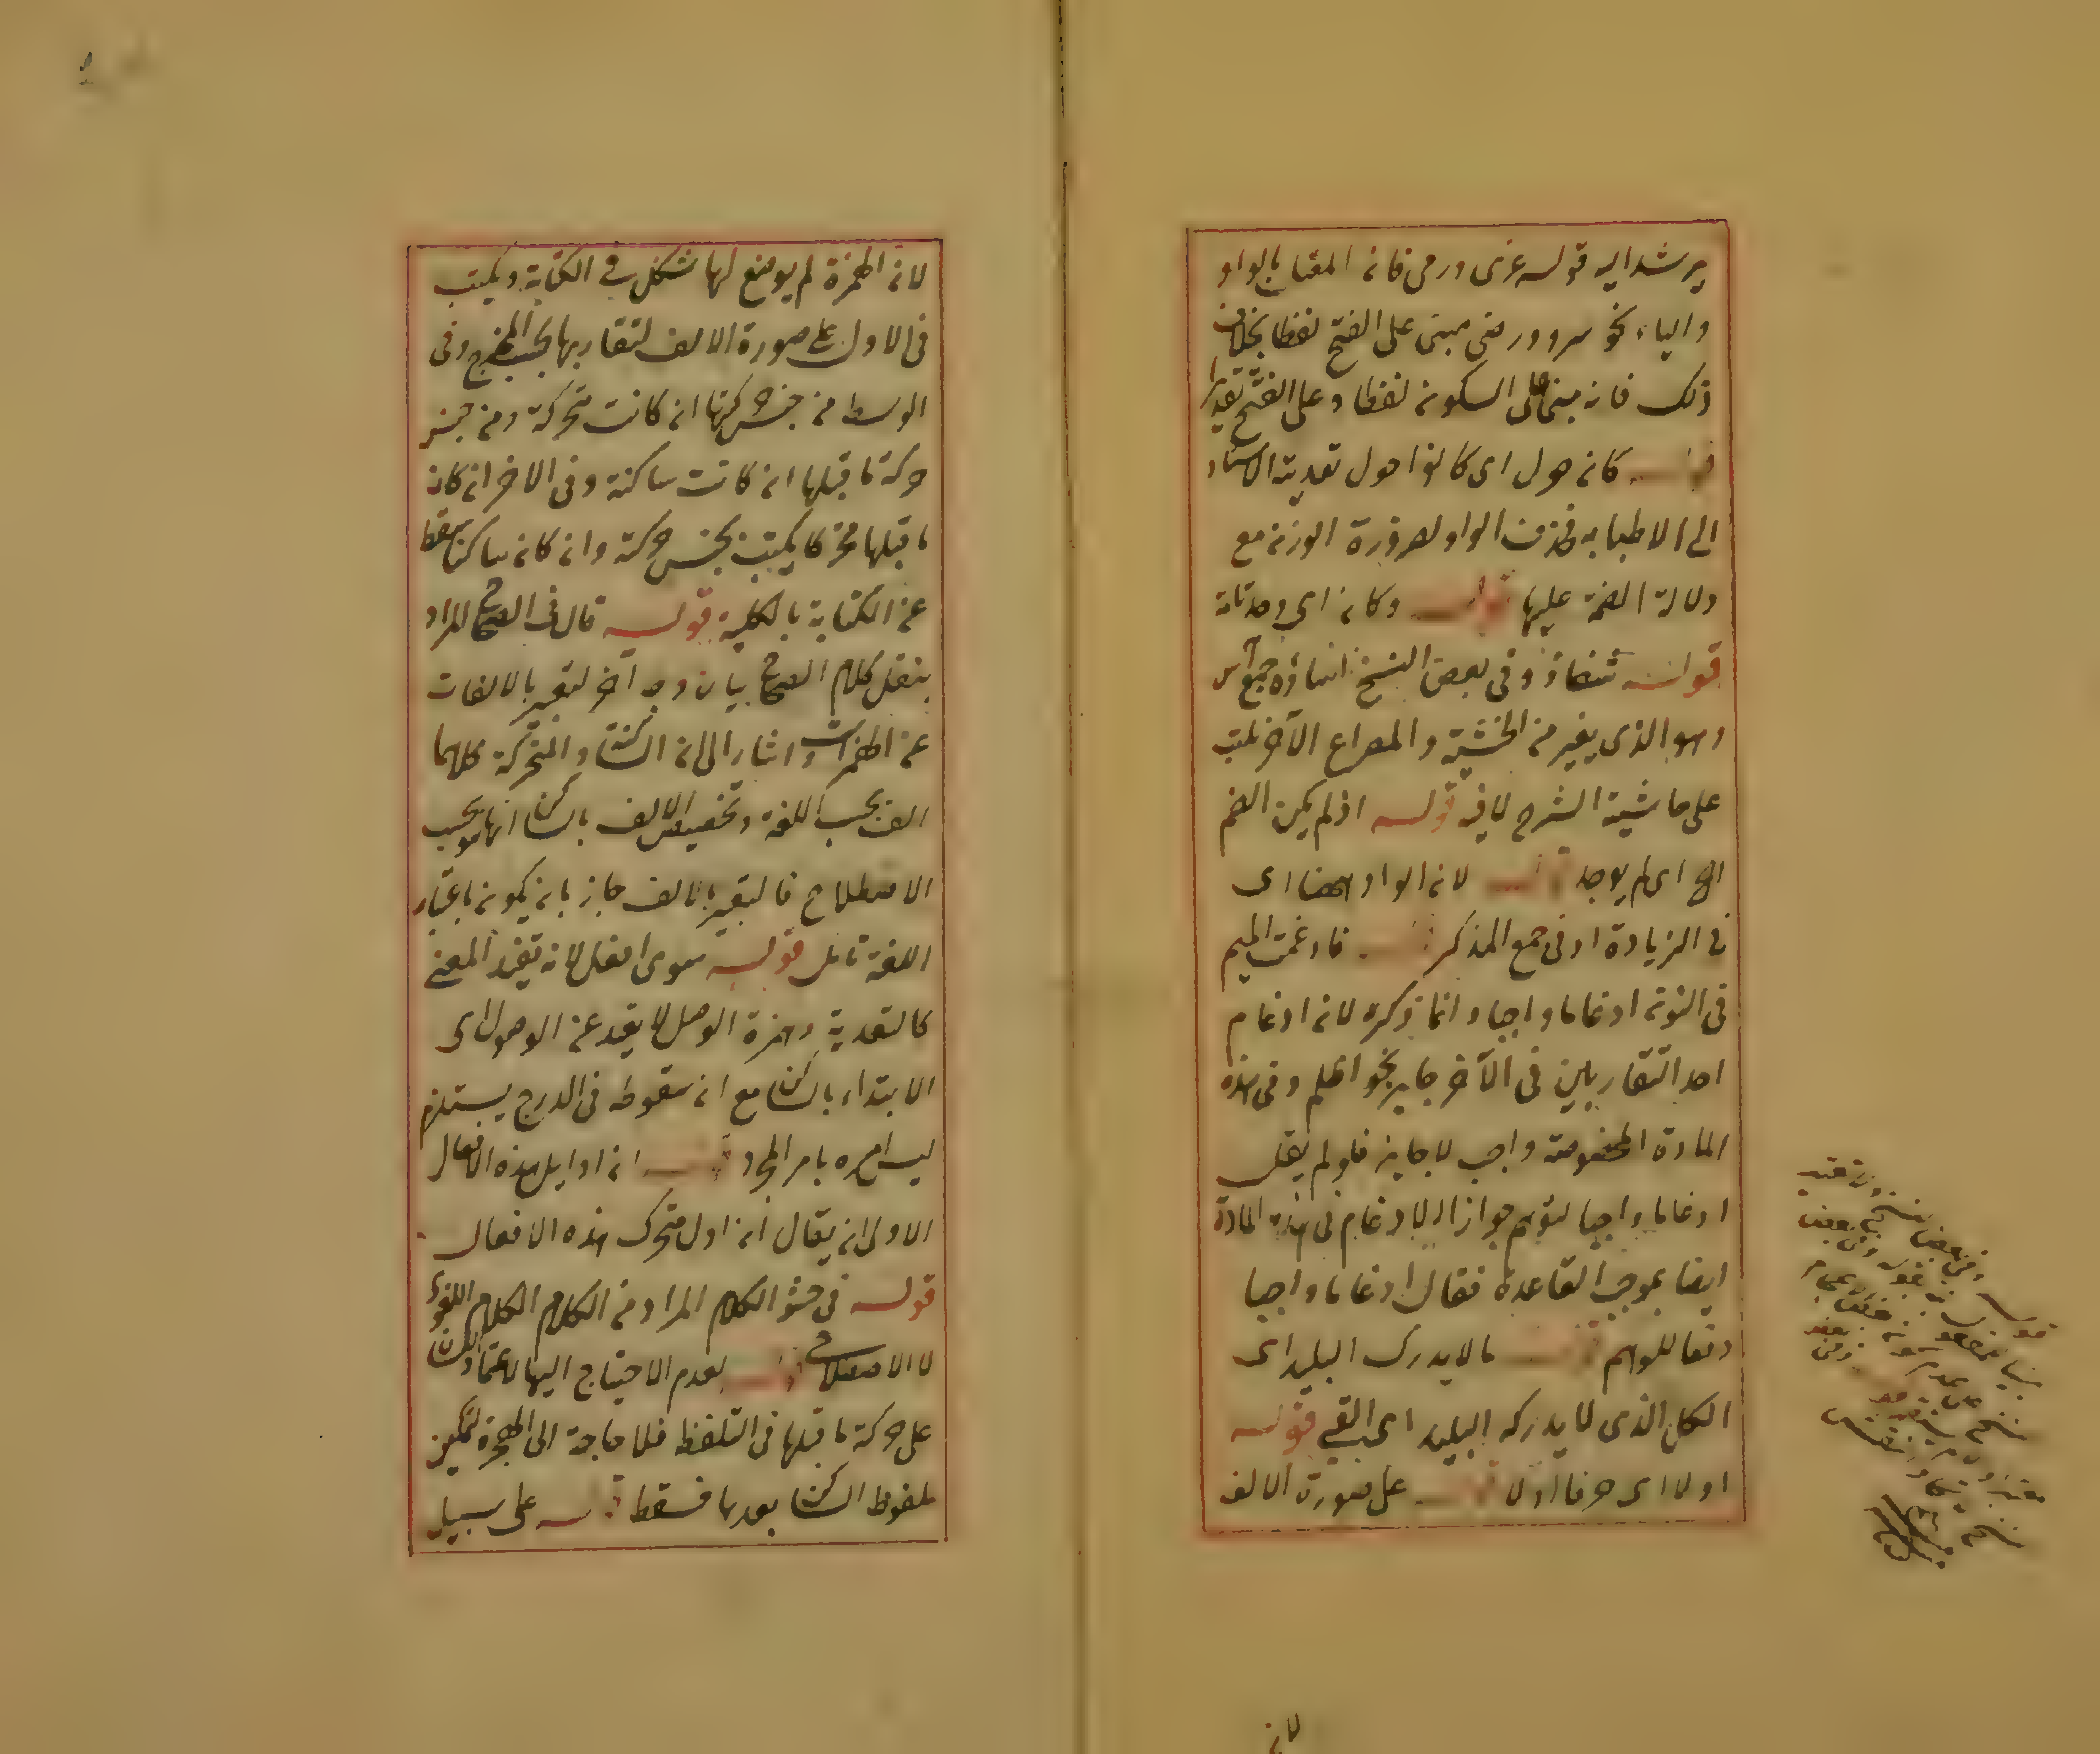 يرشد اليه قوله غزى ورمى فان المقبا بالواو
والياء نحو سرو ورضى مبنى على الفتح لفظا بخلاف
ذلك فانه مبنى على السكون لفظا وعلى الفتح تقديرا
قوله كان حول اى كانوا حول تعدية الاسناد
الى الاطبا به فحذف الواو لضرورة الوزن مع
دلالة الضمة عليها قوله وكان اى وحدتانة
قوله شفاة وفى بعض النسخ اساؤه جمع آس
وهو الذى يغير من الخشية والمصراع الآخر كتب
على حاشية الشرح لافيه قوله اذ لم يكن الضم
الخ اى لم يوجد قوله لان الواو ههنا اى
فى الزيادة او فى جمع المذكر قوله فادغمت الميم
فى النون ادغاما واجبا وانما ذكره لان ادغام
احد المتقاربين فى الآخر جايز نحو اظلم وفى هذه
المادة المخصوصة واجب لا جايز فلو لم يقل
ادغاما واجبا لتوهم جواز الادغام فى هذه المادة
ايضا بموجب القاعدة فقال ادغاما واجبا
دفعا للوهم قوله ما لا يدرك البليد اى
الكل الذى لا يدركه البليد اى القى قوله
اولا اى حرفا اولا قوله على صورة الالف
لان
لان الهمزة لم يوضع لها شكل فى الكتابة ويكتب
فى الاول على صورة الالف لتقاربها بحسب المخرج وفى
الوسط من جنس حركتها ان كانت متحركة ومن جنس
حركة ما قبلها ان كانت ساكنة وفى الاخر ان كان
ما قبلها متحركا يكتب بجنس حركة وان كان ساكنا سقط
عن الكتابة بالكلية قوله قال فى الصحاح المراد
بنقل كلام الصحاح بيان وجه آخر لتعبير بالالفات
عن الهمزات واشار الى ان الساكنة والمتحركة كلاهما
الف بحسب اللغة وتخصيص الالف بالساكن انما هو بحسب
الاصطلاح فالتعبير بالالف جاز بان يكون باعتبار
اللغة تامل قوله سوى افعل لانه تفيد المعنى
كالتعدية وهمزة الوصل لا يفيد عن الوصول اى
الابتداء بالساكن مع ان سقوطه فى الدرج يستلزم
ليس امره بامر المجرد قوله ان اوايل هذه الافعال
الاولى ان يقال ان اول متحرك هذه الافعال
قوله فى حشو الكلام المراد من الكلام الكلام اللغوى
لا الاصطلاحى قوله لعدم الاحتياج اليها لاعتماد اللسان
على حركة ما قبلها فى التلفظ فلا حاجة الى الهمزة لتمكين
ملفوظ الساكن بعدها فسقط قوله على سبيل